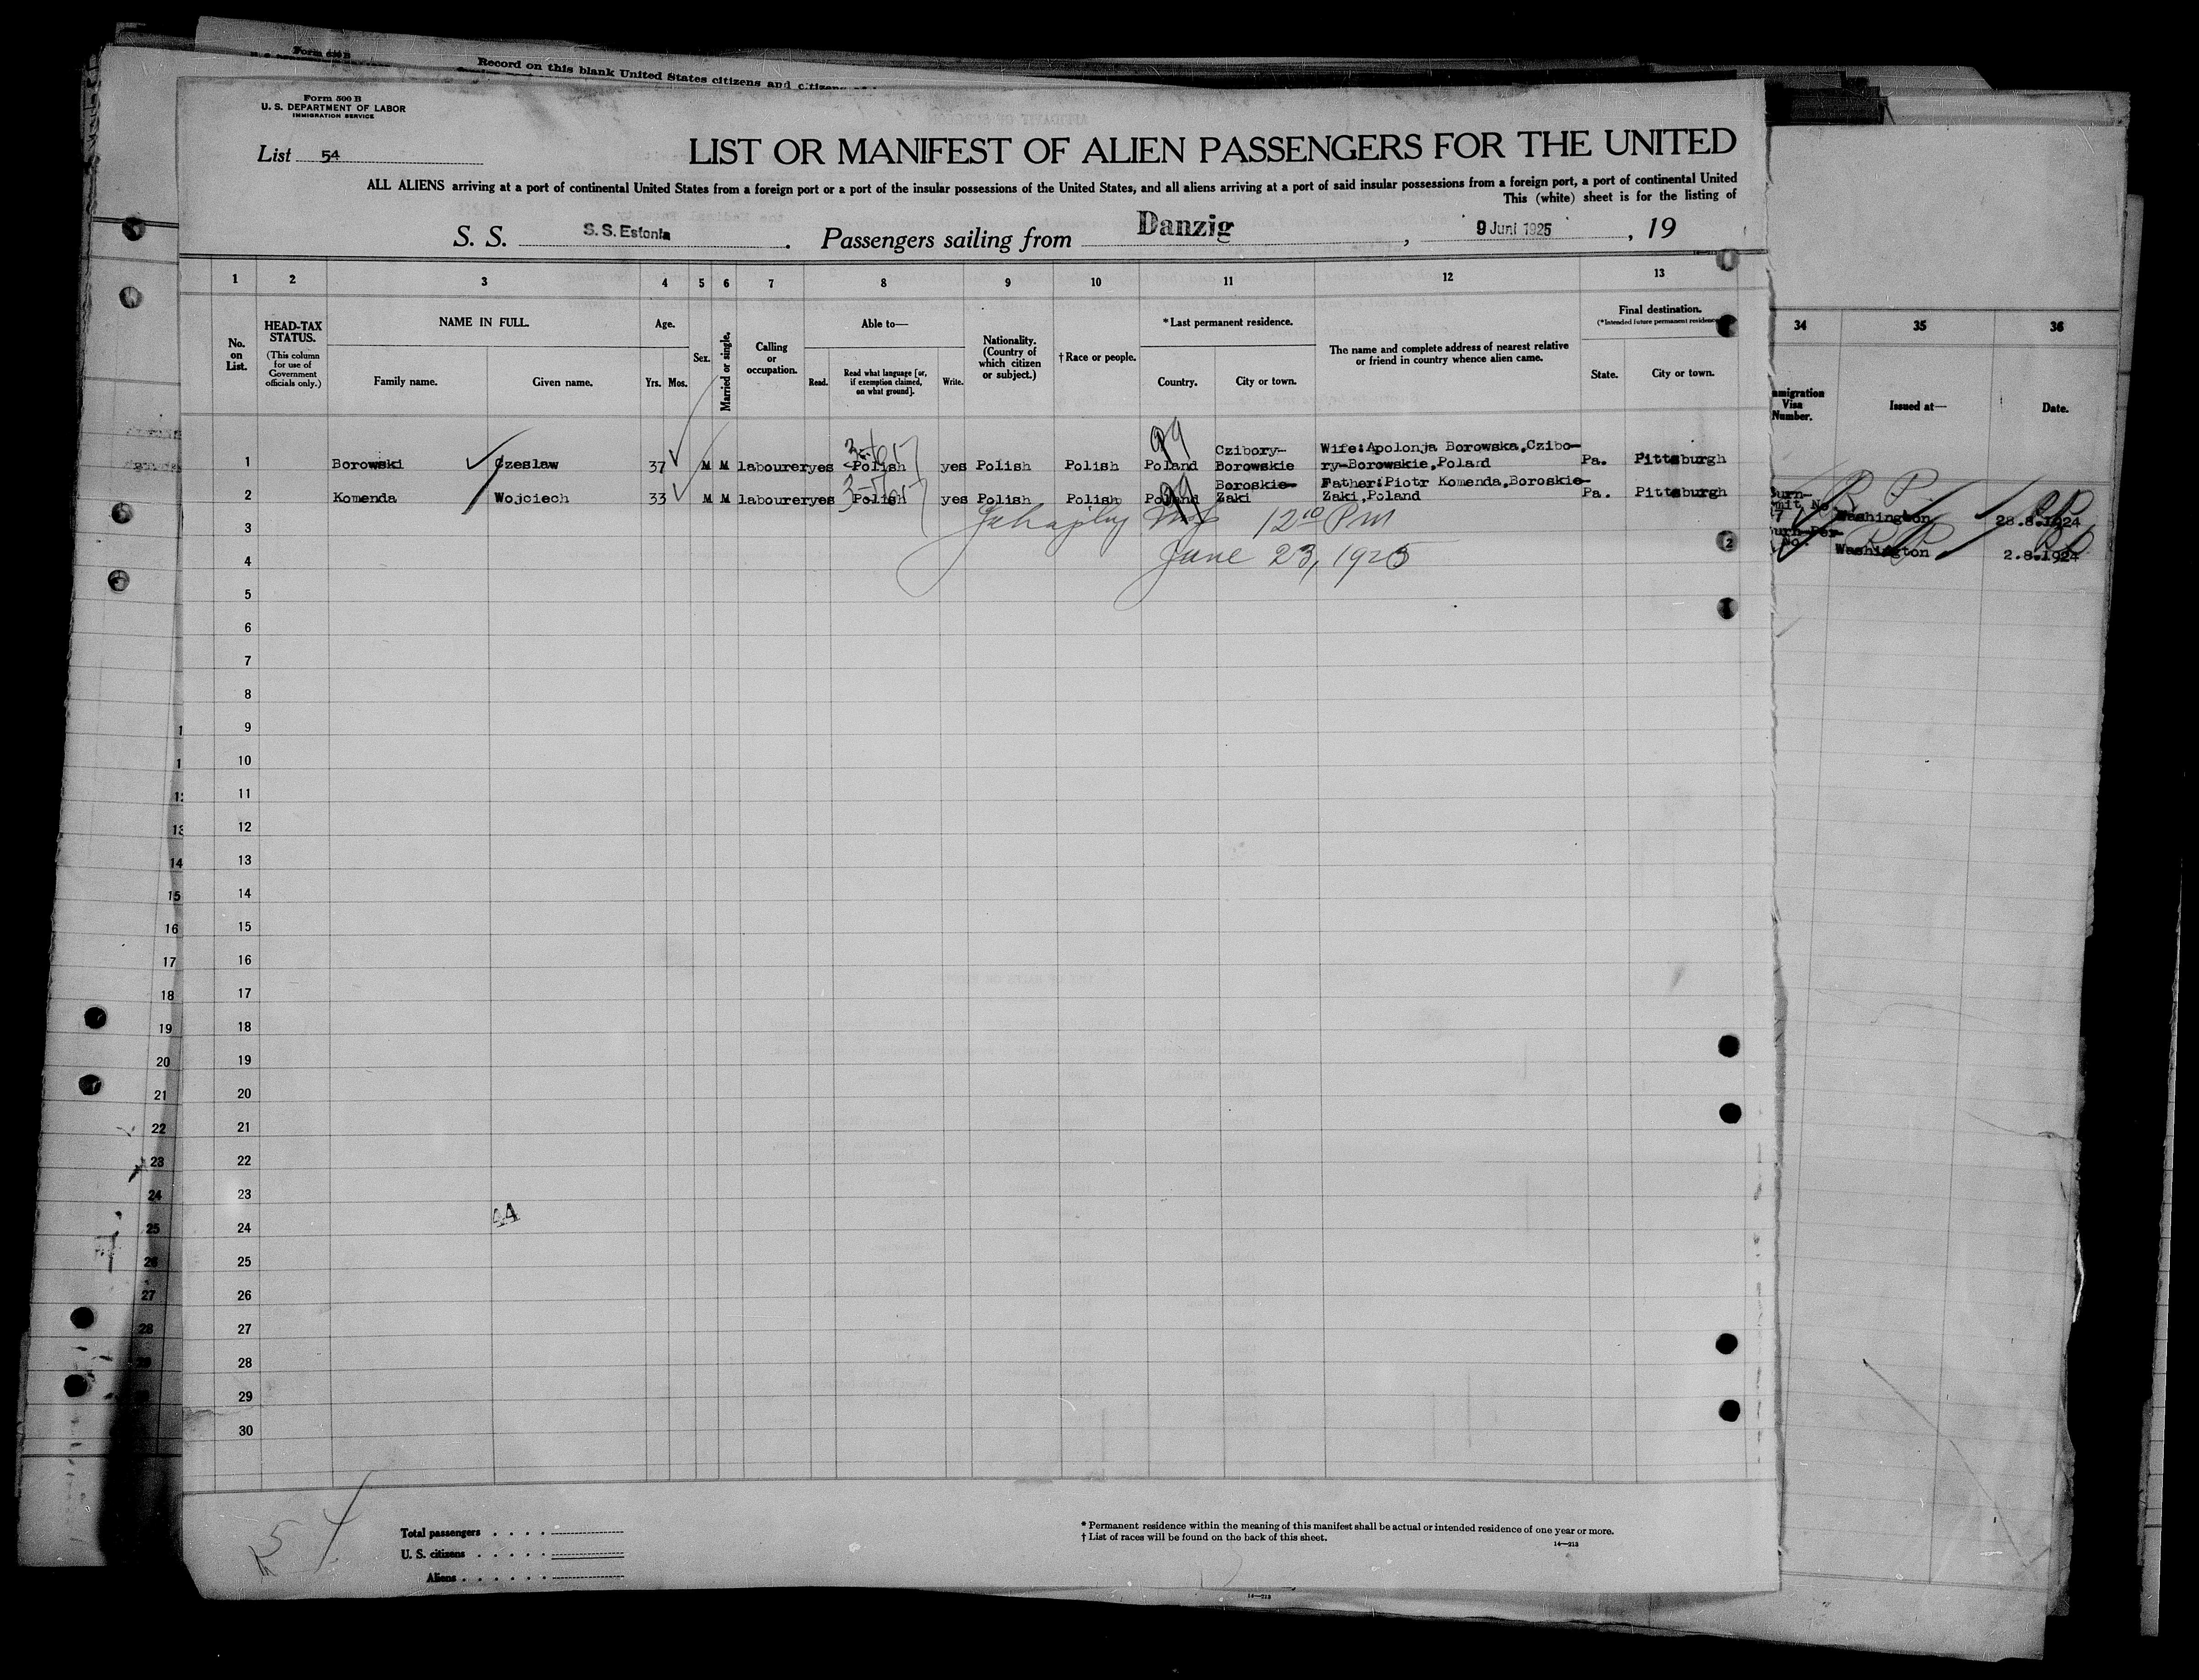 Form 630 B
Record on this blank United States citizens and citizens
Form 500 B
U. S. DEPARTMENT OF LABOR
IMMIGRATION SERVICE
List 54
LIST OR MANIFEST OF ALIEN PASSENGERS FOR THE UNITED
ALL ALIENS arriving at a port of continental United States from a foreign port or a port of the insular possessions of the United States, and all aliens arriving at a port of said insular possessions from a foreign port, a port of continental United
This (white) sheet is for the listing of
S. S. S. S. Estonia. Passengers sailing from Danzig, 9 Juni 1925, 19
1 2 3 4 5 6 7 8 9 10 11 12 13
34 35 36
No. on List.
HEAD-TAX STATUS.
(This column for use of Government officials only.)
NAME IN FULL.
Family name. Given name.
Age.
Yrs. Mos.
Sex.
Married or single.
Calling or occupation.
Able to—
Read. Read what language [or, if exemption claimed, on what ground]. Write.
Nationality. (Country of which citizen or subject.)
† Race or people.
* Last permanent residence.
Country. City or town.
The name and complete address of nearest relative or friend in country whence alien came.
Final destination.
(*Intended future permanent residence
State. City or town.
mmigration Visa Number.
Issued at—
Date.
1 Borowski Czeslaw 37 M M labourer yes Polish yes Polish Polish Poland Czibory-Borowskie Wife:Apolonja Borowska,Czibo-ry-Borowskie,Poland Pa. Pittsburgh
2 Komenda Wojciech 33 M M labourer yes Polish yes Polish Polish Poland Boroskie-Zaki Father:Piotr Komenda,Boroskie-Zaki,Poland Pa. Pittsburgh
99
99
Washington 28.8.1924
Washington 2.8.1924
12 10 PM
June 23, 1925
3
4
5
6
7
8
9
10
11
12
13
14
15
16
17
18
19
20
21
22
23
24
25
26
27
28
29
30
13
14
15
16
17
18
19
20
21
22
23
24
25
26
27
28
44
54
Total passengers
U. S. citizens
Aliens
* Permanent residence within the meaning of this manifest shall be actual or intended residence of one year or more.
† List of races will be found on the back of this sheet.
14—213
14—213